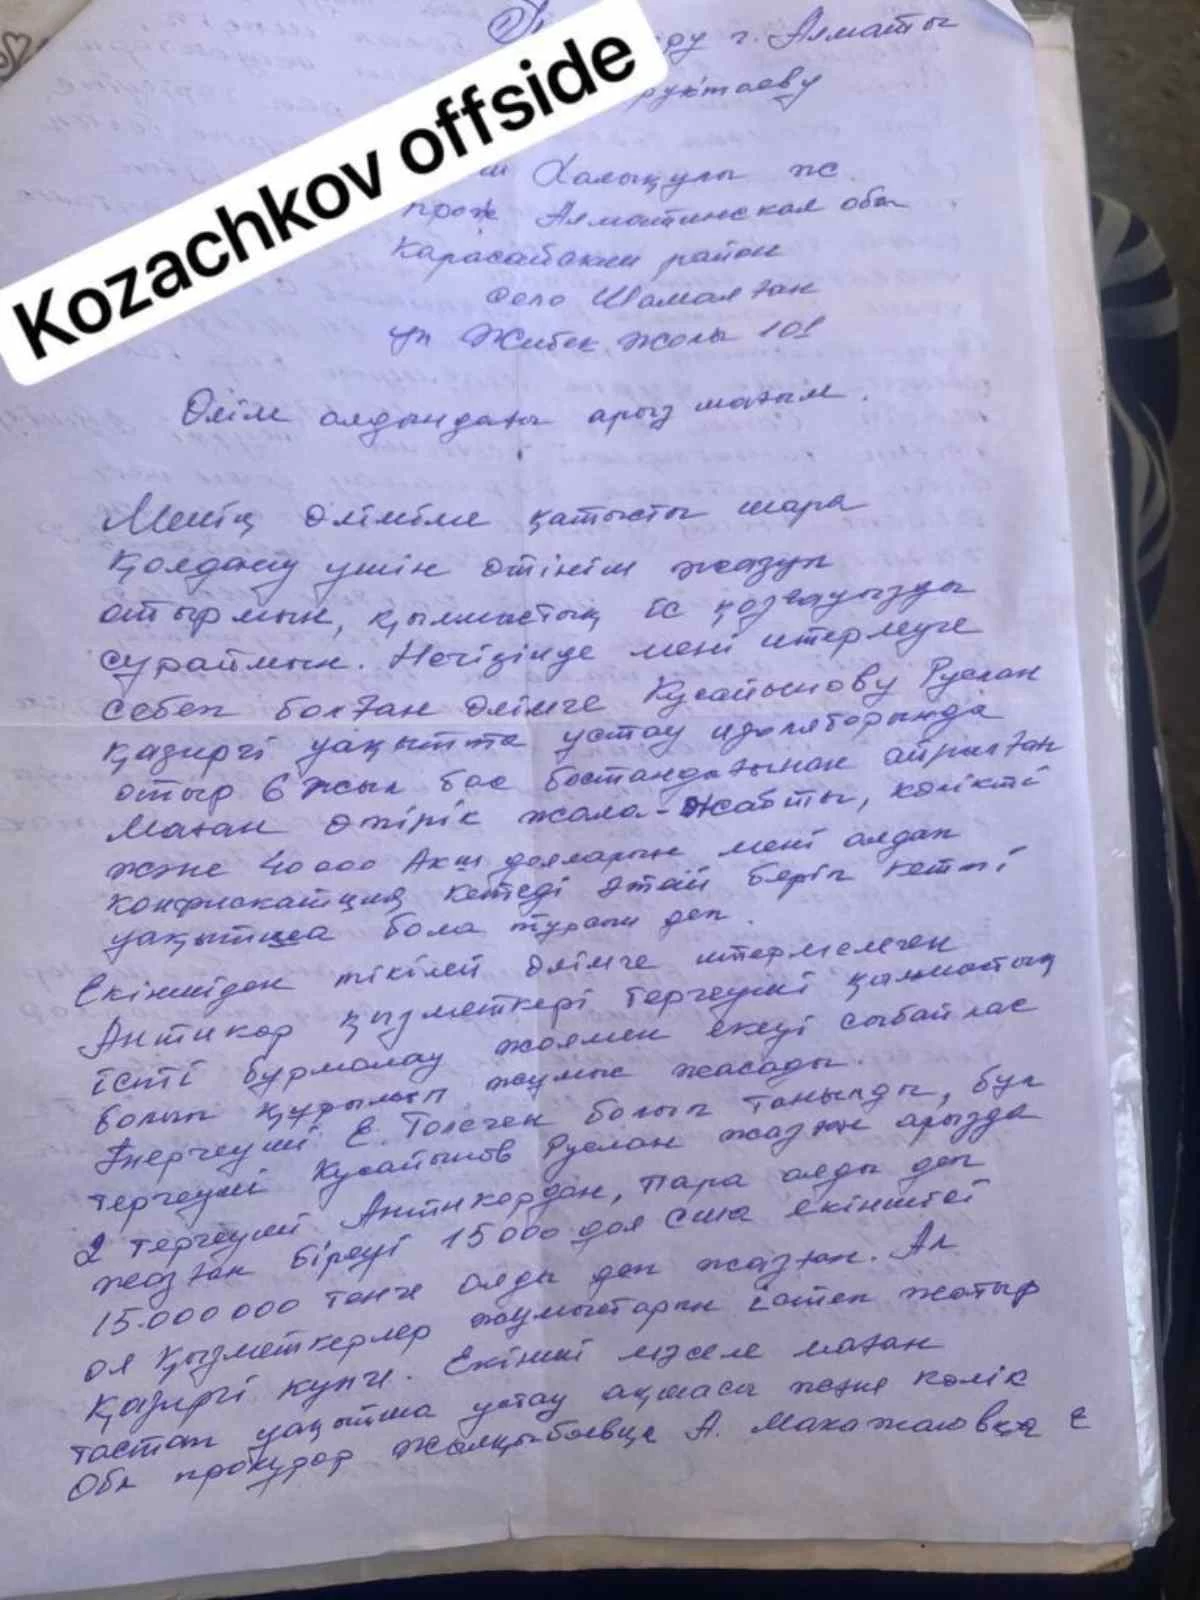 Kozachkov offside
г. Алматы
Халықулы жс.
прож Алматинская обл
Карасайский район
село Шамалған
ул Жибек жолы 101
Өлім алдындағы арыз мағым.
Менің өліміме қатысты шара
қолдану үшін өтініш жазып
отырмын, қылмыстық іс қозғауызды
сұраймын. Негізінде мені итермеуге
себеп болған өлімге Кусайынову Руслан
қазіргі уақытта устау изоляторында
отыр 6 жыл бас бостандығынан айрылған
Маған өтірік жала-жабты, көлікті
және 40000 Акш долларын мені алдап
конфискация кетеді өтай беріп кетті
уақытша бола тұрсын деп.
Екіншіден тікілей өлімге итермелеген
Антикор қызметкері тергеуші қылмыстық
істі бурмалау жоямен екеуі сыбайлас
болып құрылып жұмыс жасады.
Тергеуші Е. Толеген болып танылды, бұл
тергеуші Кусайынов Руслан жазған арызда
2 тергеуші Антикордан, пара алды деп
жазған біреуі 15000 дол сша екіншісі
15.000 000 тенге алды деп жазған. Ал
ол қызметкерлер жұмыстарын істеп жатыр
қазіргі күнге. Екінші мәселе маған
тастап уақытша устау ақшасы және көлік
Обл прокурор А.